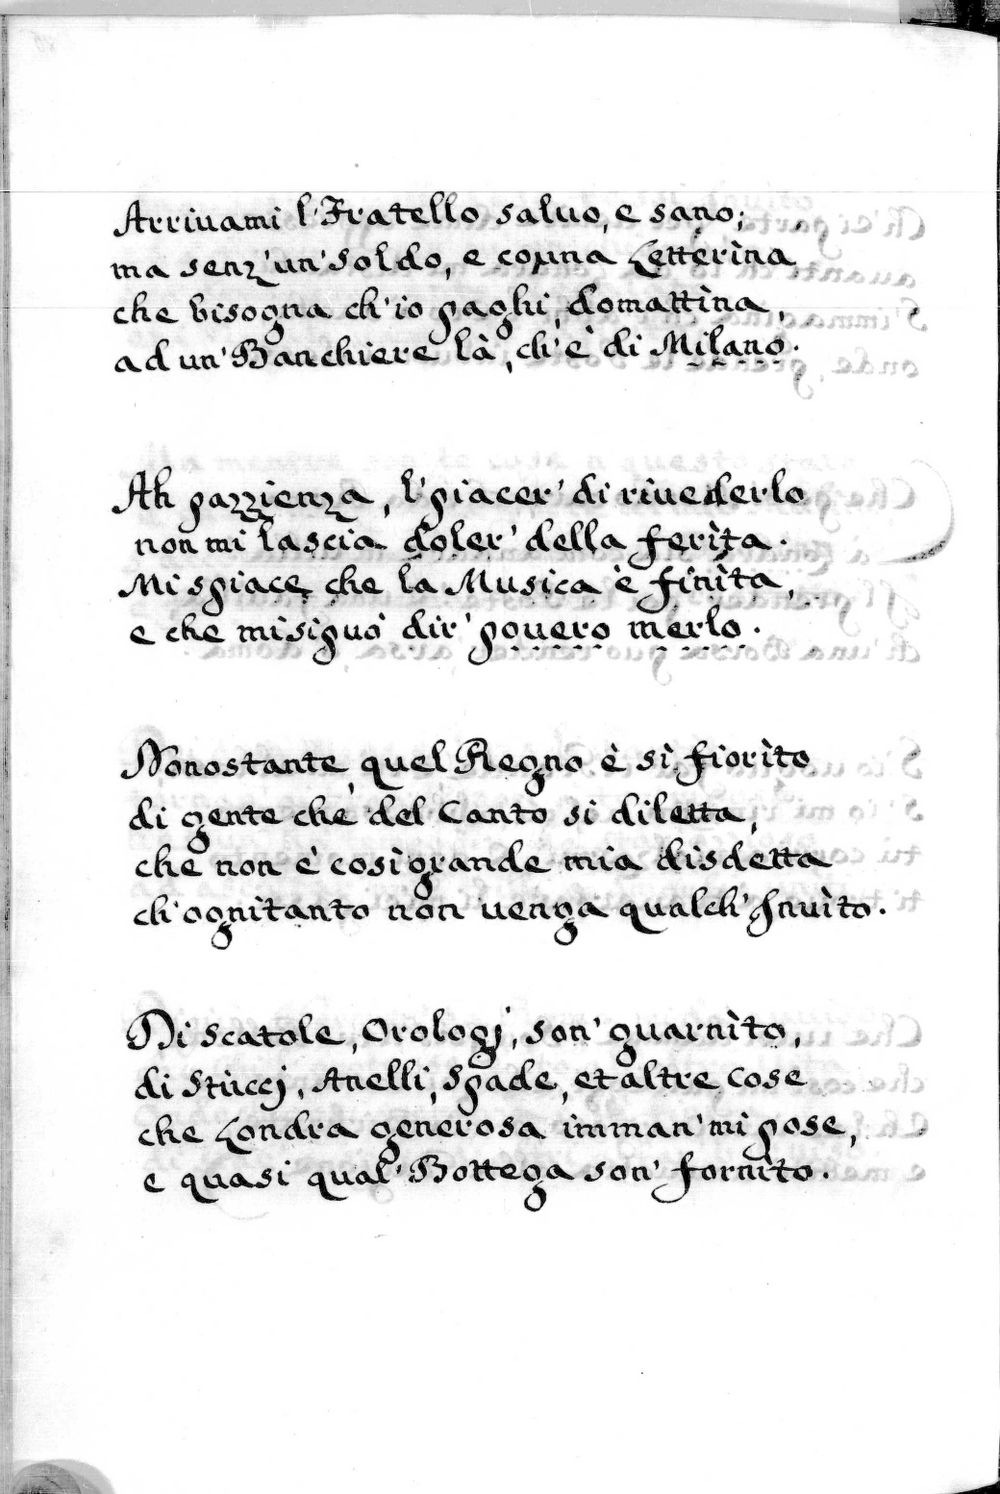 Arriuami l'Fratello saluo, e sano;
ma senz'un'soldo, e con'una Letterina
che bisogna ch'io paghi, domattina,
ad un'Banchiere là, ch'è di Milano.
Ah pazzienza, l'piacer' di riuederlo
non mi lascia doler' della ferìta.
Mi spiace, che la Musica è finìta,
e che mi si può dir' pouero merlo.
Nonostante, quel Regno è sì fiorìto
di gente che del Canto si diletta,
che non è così grande mia disdetta
ch'ognitanto non uenga qualch'Inuìto.
Di Scatole, Orologj, son' guarnìto,
di Stùccj, Anelli, Spade, et altre cose
che Londra generosa imman' mi pose,
e quasi qual' Bottega son' fornìto.